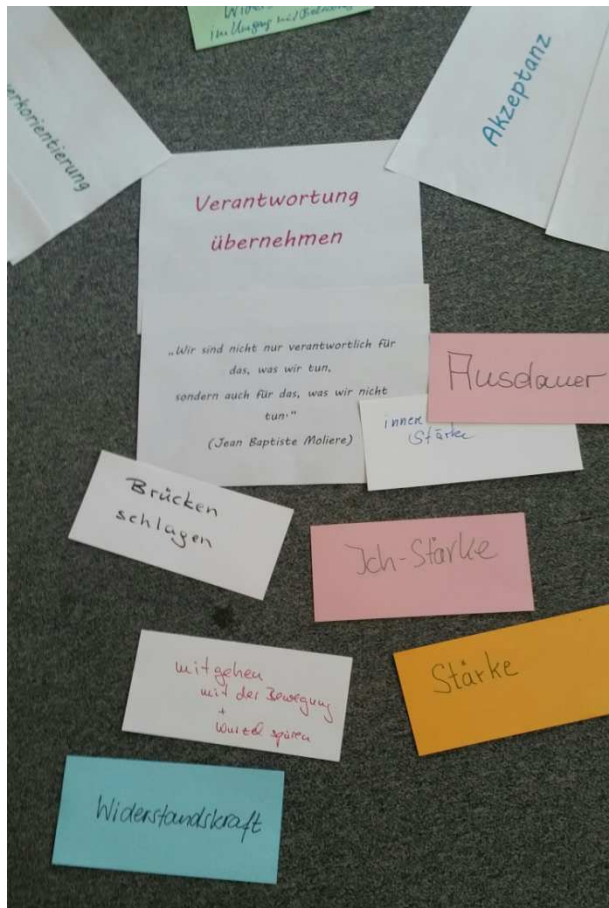 im Umgang mit
erkorientierung
Akzeptanz
Verantwortung
übernehmen
„Wir sind nicht nur verantwortlich für
das, was wir tun,
sondern auch für das, was wir nicht
tun."
(Jean Baptiste Moliere)
Ausdauer
innere
Stärke
Brücken
schlagen
Ich-Stärke
mitgehen
mit der Bewegung
+
Wurzel spüren
Stärke
Widerstandskraft